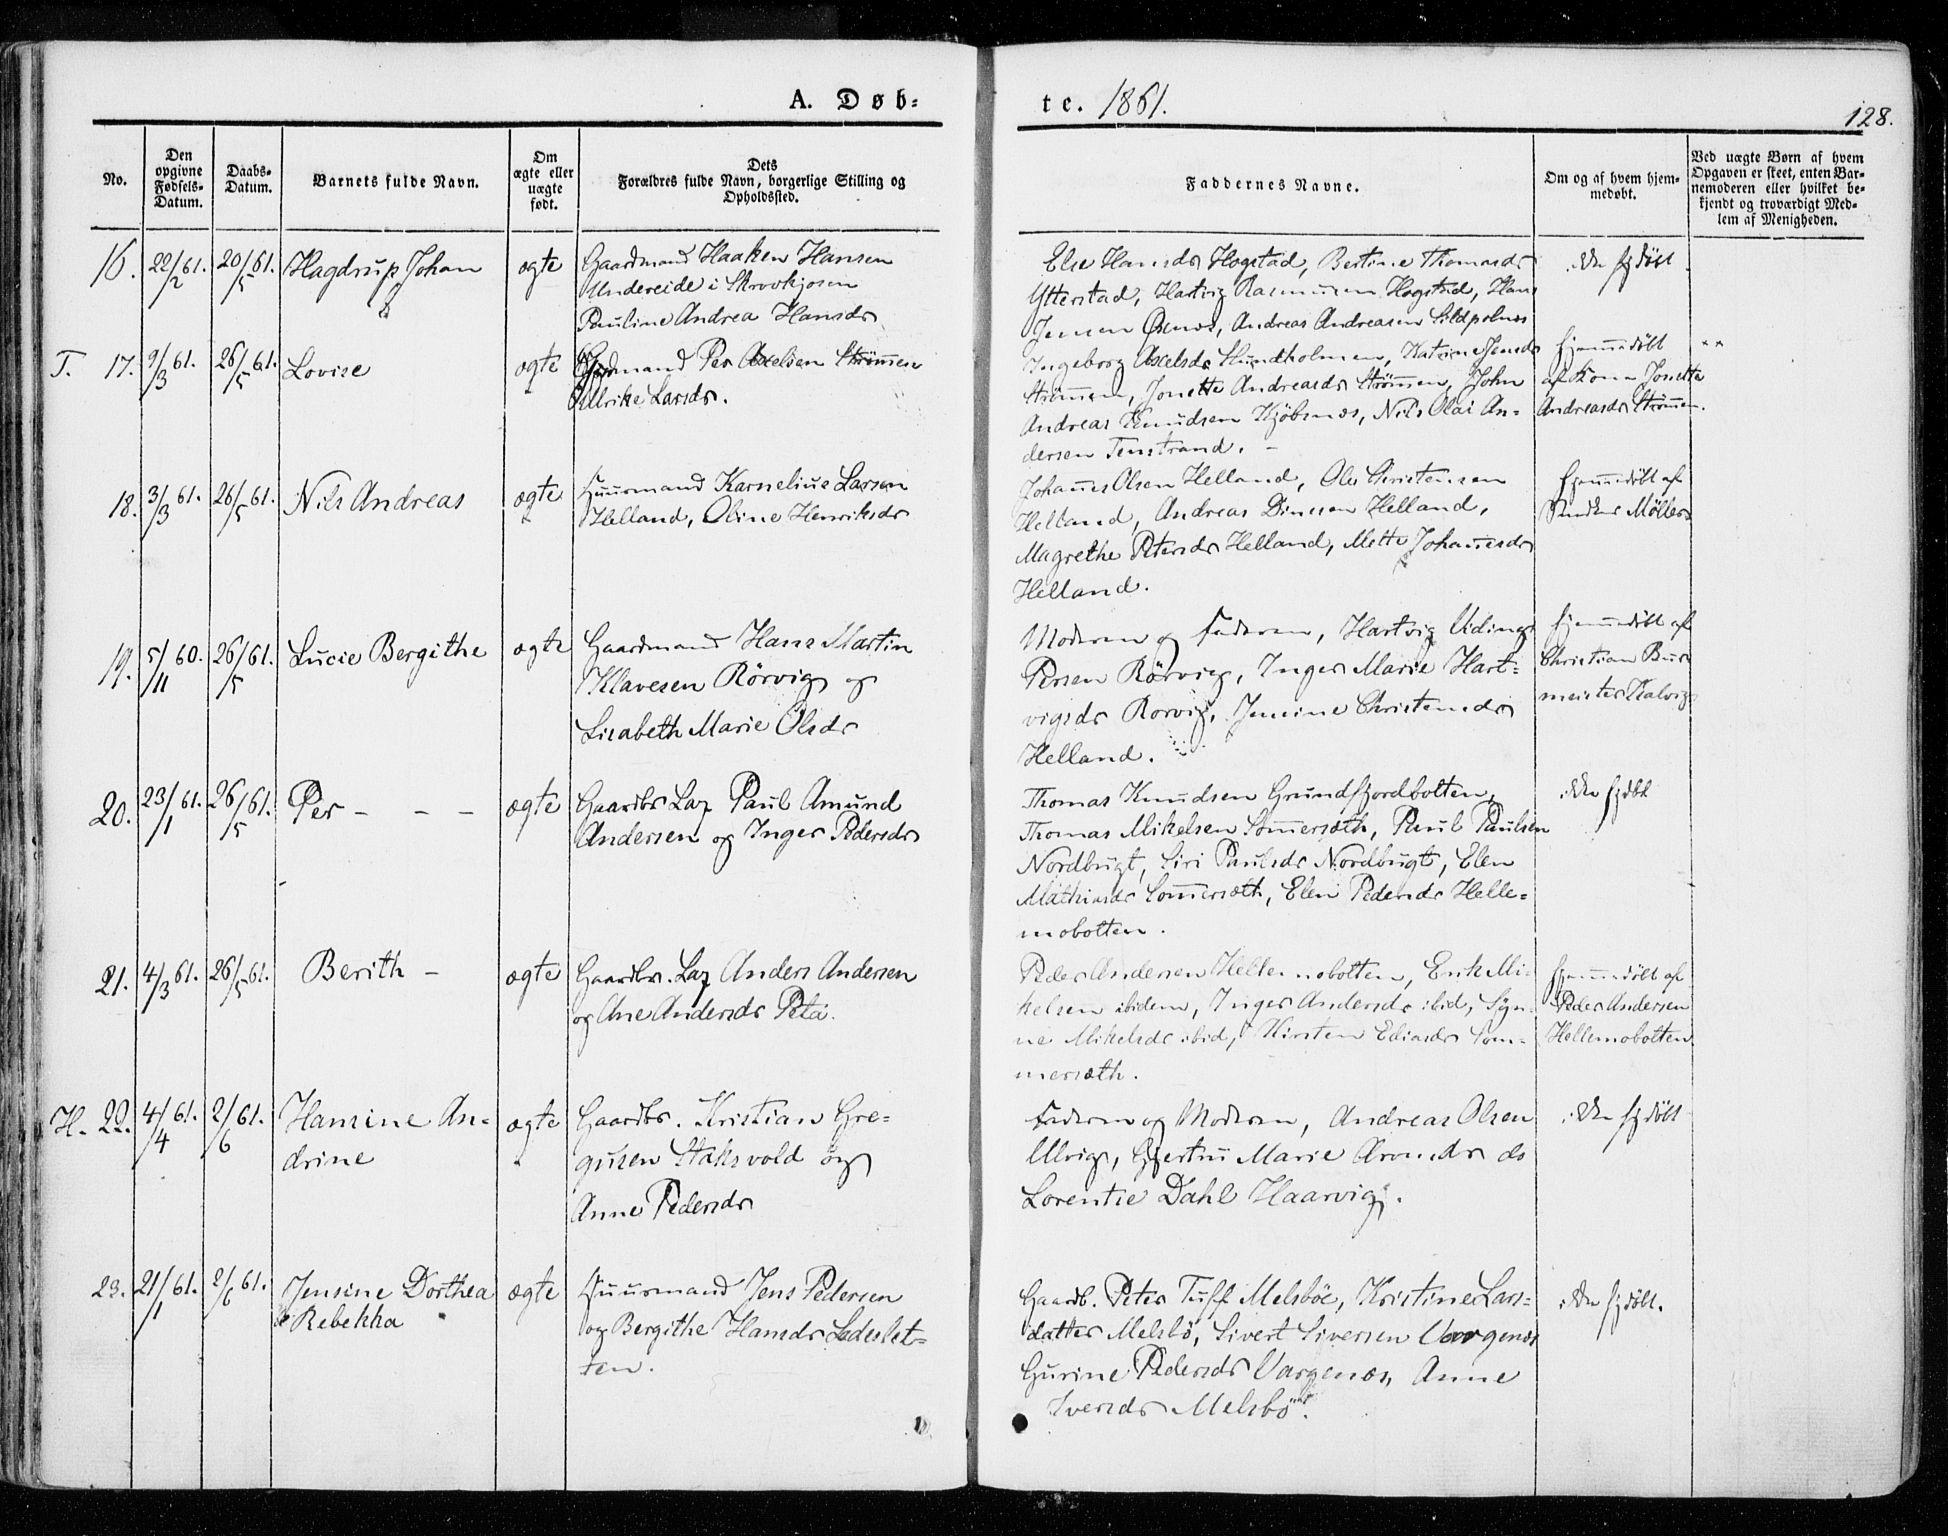 A. Døb=
te. 1861.
128.
No.
Den opgivne Fødsels-Datum.
Daabs-Datum.
Barnets fulde Navn.
Om ægte eller uægte født.
Dets Forældres fulde Navn, borgerlige Stilling og Opholdssted.
Faddernes Navne.
Om og af hvem hjemmedøbt.
Ved uægte Børn af hvem Opgaven er skeet, enten Barnemoderen eller hvilket bekjendt og troværdigt Medlem af Menigheden.
16. 22/2 61. 20/5 61. Hagdrup Johan ægte
Gaardmand Haaken Hansen
Undereide i Skrovkjosen
Pauline Andrea Hansdr
Else Hansdr Hogstad, Bertine Thomasdr
Ytterstad, Hartvig Rasmusen Hogstad, Hans
Jensen Øsnæs, Andreas Andreasen Sildpolnes
ikke hjdøbt
T. 17. 9/3 61. 26/5 61. Lovise ægte
Gaardmand Per Axelsen Strømen
Ulrike Larsdr.
Ingeborg Axelsdr Hundholmen, Katrine Jensdr
Strømen, Jonette Andreasdr Strømen, John
Andreas Knudsen Kjöbsnæs, Nils Olai An=
dersen Tenstrand. –
hjemmedöbt
af Kone Jonette
Andreasdr Strömen.
18. 3/3 61. 26/5 61. Nils Andreas ægte
Huusmand Karnelius Larsen
Helland, Oline Henriksdr
Johanes Olsen Helland, Ole Christensen
Helland, Andreas Dinesen Helland,
Magrethe Petersdr Helland, Mette Johanesdr
Helland.
hjemmedöbt af
Møller
19. 5/11 60. 26/5 61. Lucie Bergithe ægte
Gaardmand Hans Martin
Klavesen Rörvig og
Lisabeth Marie Olsdr
Moderen og Faderen, Hartvig Uding
Persen Rörvig, Inger Marie Hart=
vigsdr Rorvig, Jensine Christensdr
Helland.
hjemmedöbt af
Christian Bur
meister Kalvig
20. 23/1 61. 26/5 61. Per – – – ægte
Gaardbr Lap Paul Amund
Andersen og Inger Pedersdr
Thomas Knudsen Grundfjordbotten,
Thomas Mikelsen Sömersæth, Paul Paulsen
Nordbugt, Siri Paulsdr Nordbugt, Elen
Mathiasdr Sommersæth, Elen Pedersdr Helle=
mobotten.
ikke hjdöbt
21. 4/3 61. 26/5 61. Berith – ægte
Gaardbr. Lap Anders Andersen
og Ane Andersdr Peta.
Peder Andersen Hellemobotten, Erik Mi=
kelsen ibidem, Inger Andersdr ibid, Syn=
ne Mikelsdr ibid, Kirsten Ediasdr Som=
mersæth.
hjemmedöbt af
Peder Andersen
Hellemobotten
H. 22. 4/4 61. 2/6 61. Hansine An=
drine
ægte
Gaardbr. Kristian Gre=
gusen Staksvold og
Anne Pedersdr
Faderen og Moderen, Andreas Olsen
Ulvig, Gjertru Marie Arensdr do
Lorentse Dahl Haarvig.
ikke hjdöbt
23. 21/1 61. 2/6 61. Jensine Dorthea
Rebekka
ægte
Huusmand Jens Pedersen
og Bergithe Hansdr Ladeslet=
ten.
Gaardb. Peter Tuff Melsböe, Kristine Lars=
datter Melsbö, Sivert Siversen Vargenæs
Gurine Pedersdr Vargenæs, Anne
Iversdr Melsbö.
ikke hjdöbt.